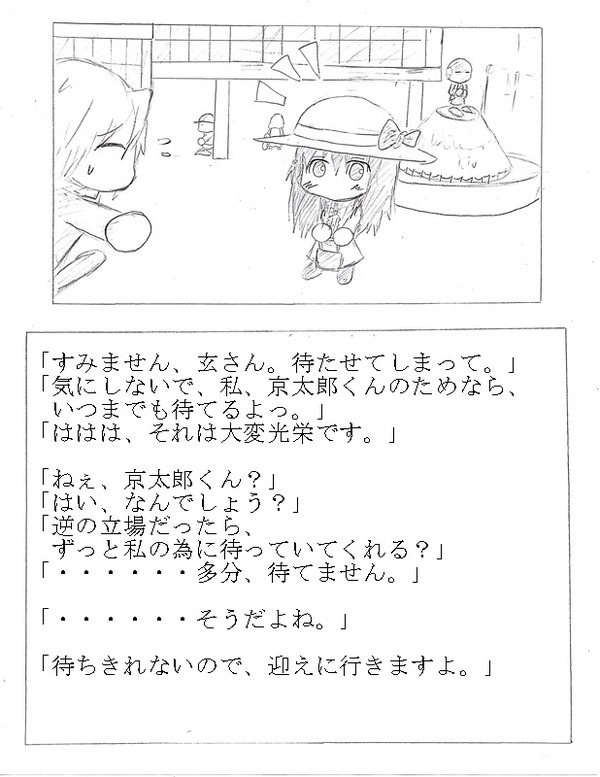 「すみません、玄さん。待たせてしまって。」
「気にしないで、私、京太郎くんのためなら、
いつまでも待てるよっ。」
「ははは、それは大変光栄です。」
「ねぇ、京太郎くん？」
「はい、なんでしょう？」
「逆の立場だったら、
ずっと私の為に待っていてくれる？」
「・・・・・・多分、待てません。」
「・・・・・・そうだよね。」
「待ちきれないので、迎えに行きますよ。」